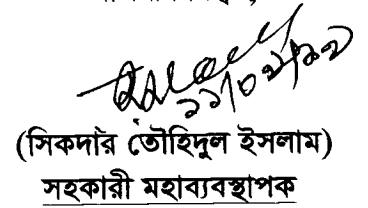 ১১/০২/১২
(সিকদার তৌহিদুল ইসলাম)
সহকারী মহাব্যবস্থাপক